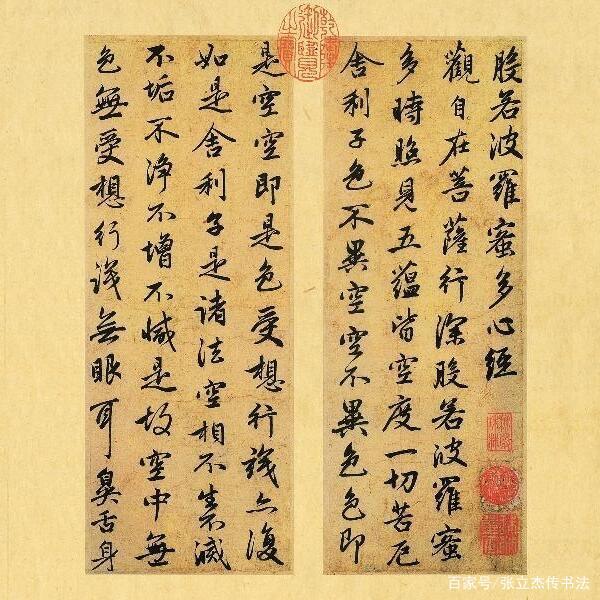 般若波羅蜜多心經
觀自在菩薩行深般若波羅蜜
多時照見五蘊皆空度一切苦厄
舍利子色不異空空不異色色即
是空空即是色受想行識亦復
如是舍利子是諸法空相不生不滅
不垢不淨不增不減是故空中無
色無受想行識無眼耳鼻舌身
百家号/张立杰传书法